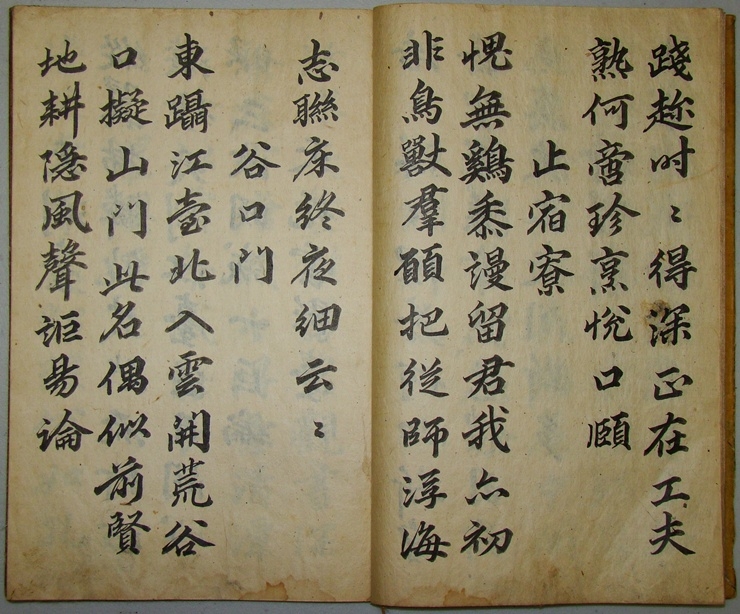 踐趂时〻得深正在工夫
熟何啻珍烹悅口頤
止宿寮
愧無鷄黍漫留君我亦初
非鳥獸羣願把從師浮海
志聯床終夜細云〻
谷口門
東躡江臺北入雲開荒谷
口擬山門此名偶似前賢
地耕隱風聲詎易論